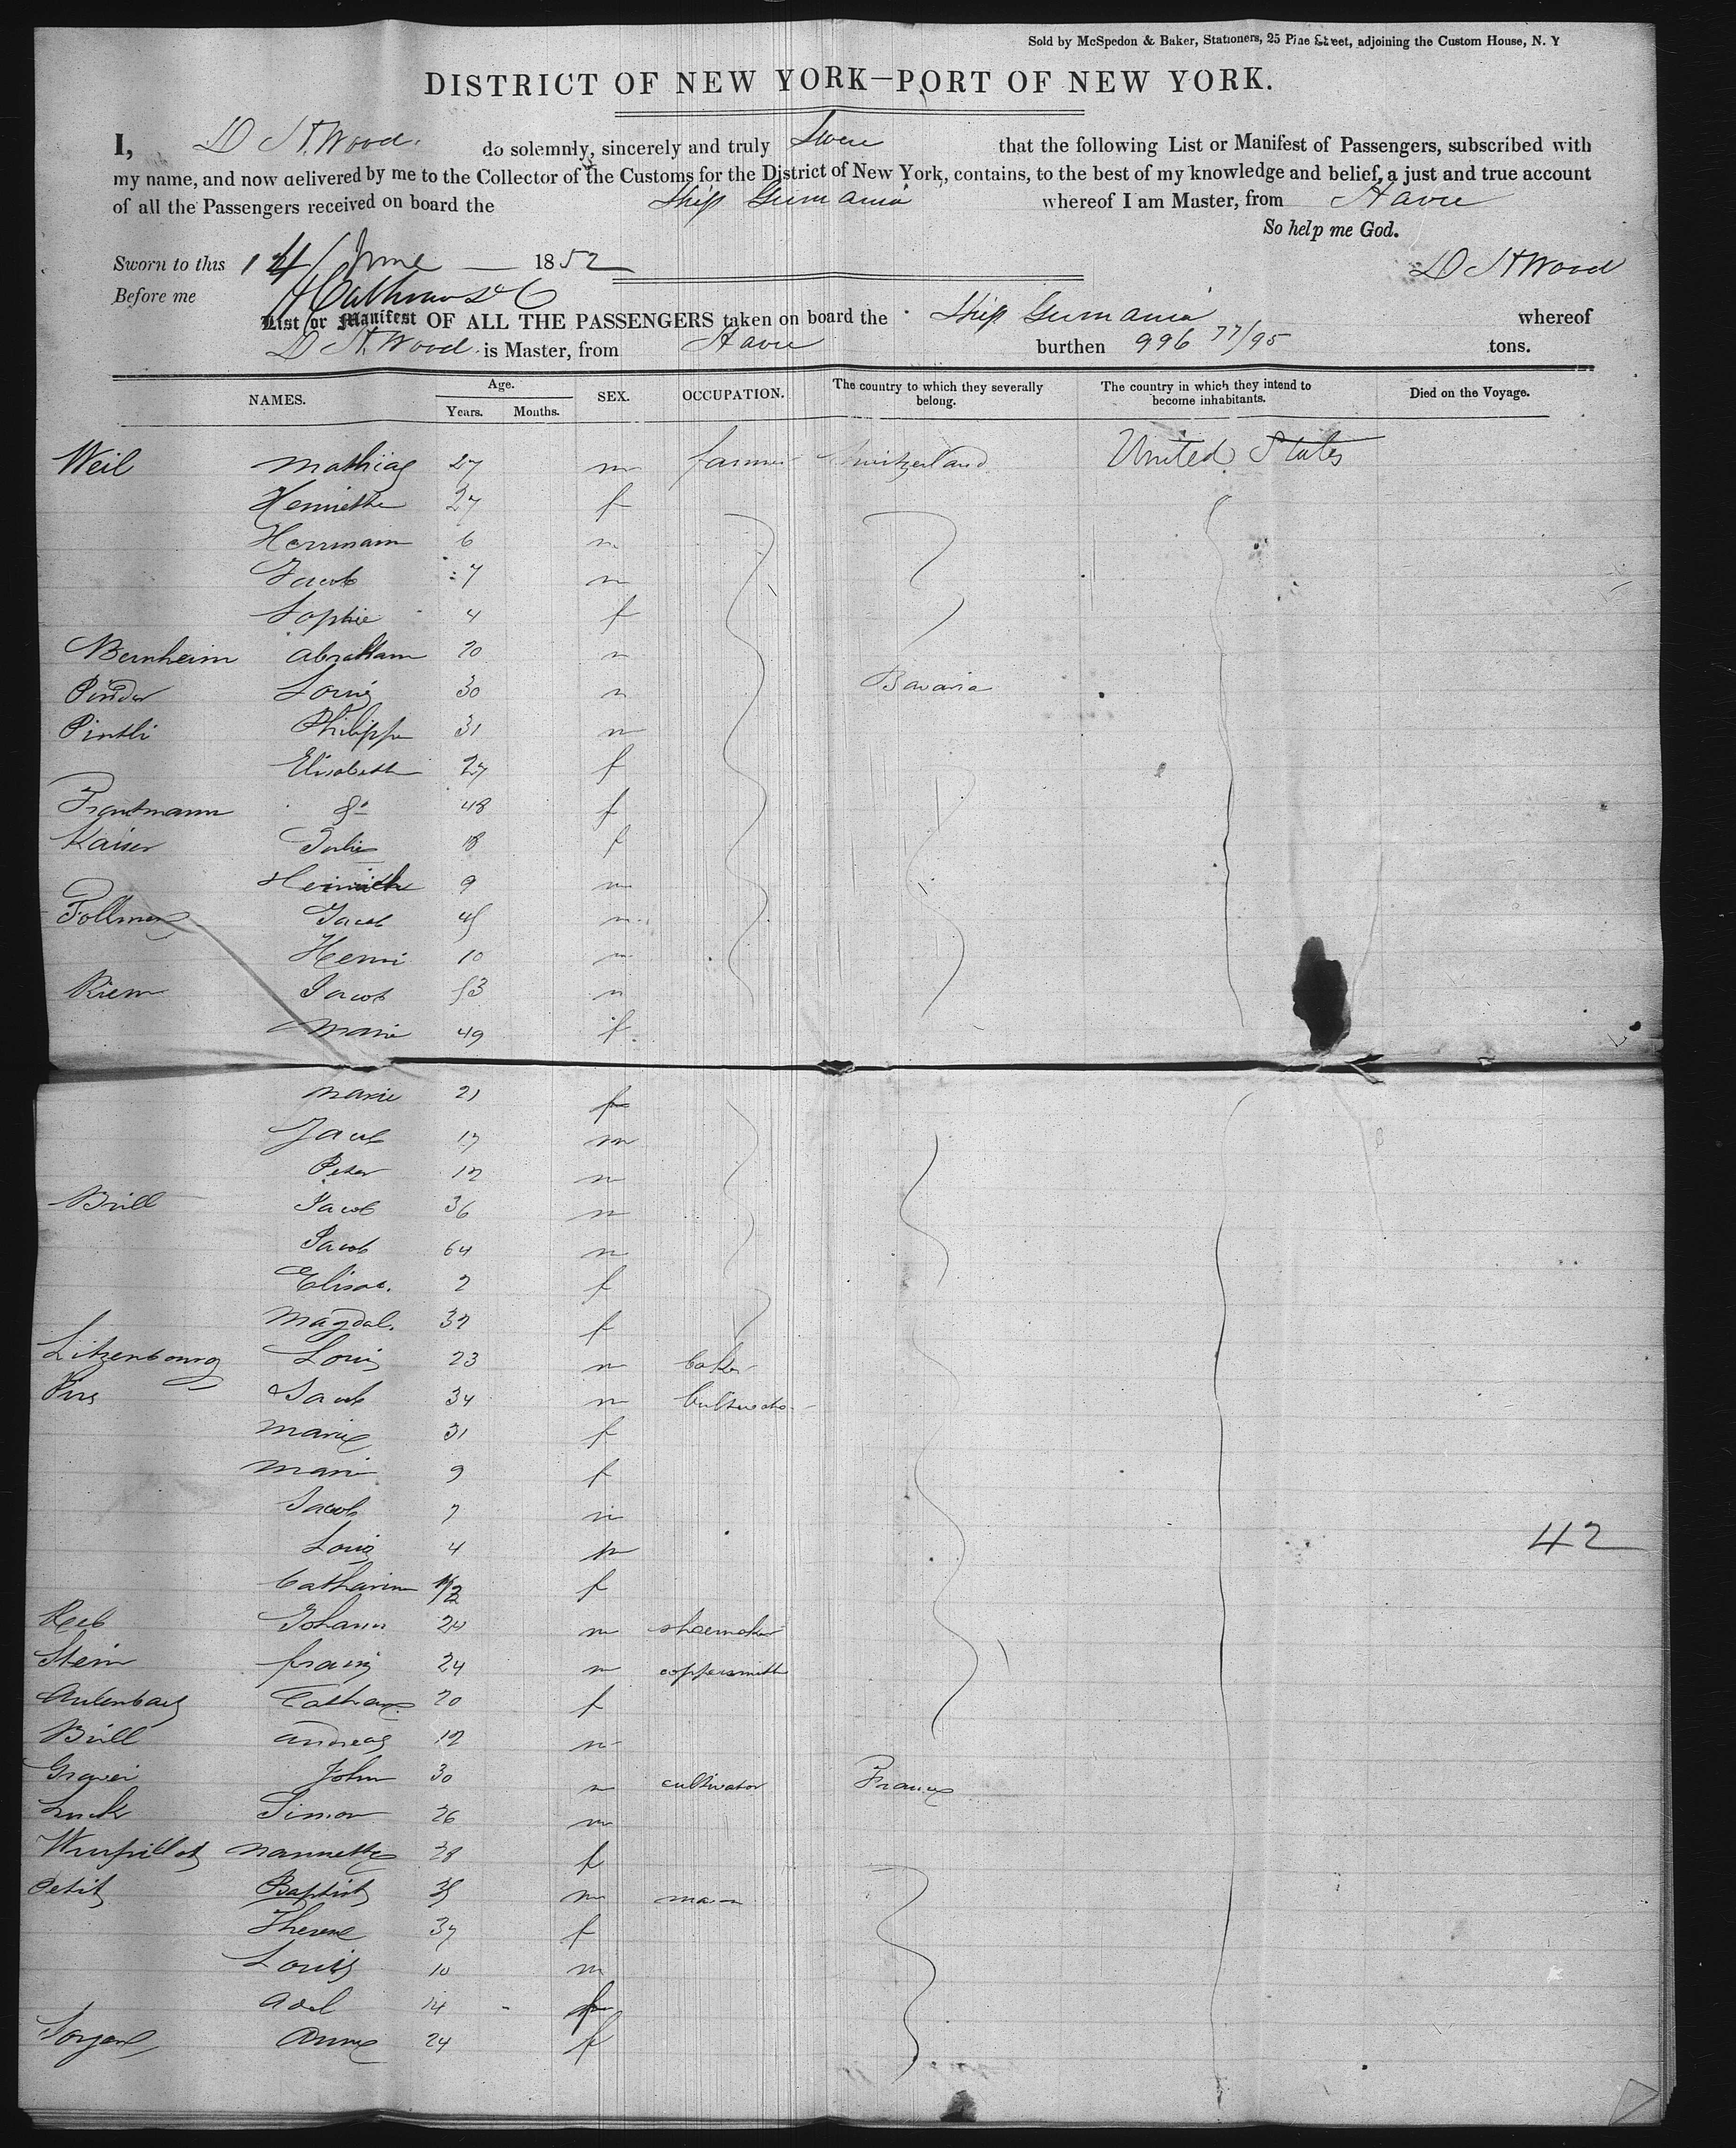 Sold by McSpedon & Baker, Stationers, 25 Pine Street, adjoining the Custom House, N. Y
DISTRICT OF NEW YORK—PORT OF NEW YORK.
I, D H. Wood. do solemnly, sincerely and truly Swear that the following List or Manifest of Passengers, subscribed with
my name, and now delivered by me to the Collector of the Customs for the District of New York, contains, to the best of my knowledge and belief, a just and true account
of all the Passengers received on board the Ship Germania whereof I am Master, from Havre
So help me God.
Sworn to this 14 June 1852 D H Wood
Before me
List or Manifest OF ALL THE PASSENGERS taken on board the Ship Germania whereof
D H. Wood is Master, from Havre burthen 996 77/95 tons.
NAMES. Age. Years. Months. SEX. OCCUPATION. The country to which they severally belong. The country in which they intend to become inhabitants. Died on the Voyage.
Weil Mathias 27 m farmer Switzerland United States
Henriette 27 f
Herrmann 6 m
Jacob 7 m
Sophie 4 f
Bernheim Abraham 20 m
Louis 30 m Bavaria
Philippe 31 m
Elisabeth 27 f
Trautmann do 48 f
Kaiser Julie 18 f
Heinrich 9 m
Jacob 45 m
Henri 10 m
Riem Jacob 53 m
Marie 49 f
Marie 21 f
Jacob 17 m
Peter 12 m
Brill Jacob 36 m
Jacob 64 m
Elisab. 2 f
Magdal. 32 f
Litzenbourg Louis 23 m baker
Jacob 34 m Cultivator
Marie 31 f
Marie 9 f
Jacob 7 m
Louis 4 m 42
Catharine f
Reeb Johann 24 m shoemaker
Stein franz 24 m coppersmith
Cathar. 20 f
Brill Andreas 12 m
John 30 m cultivator France
Luck Simon 26 m
Nannette 28 f
Petit Baptist 35 m mason
Therese 37 f
Louis 10 m
Adel 14 f
Anne 24 f